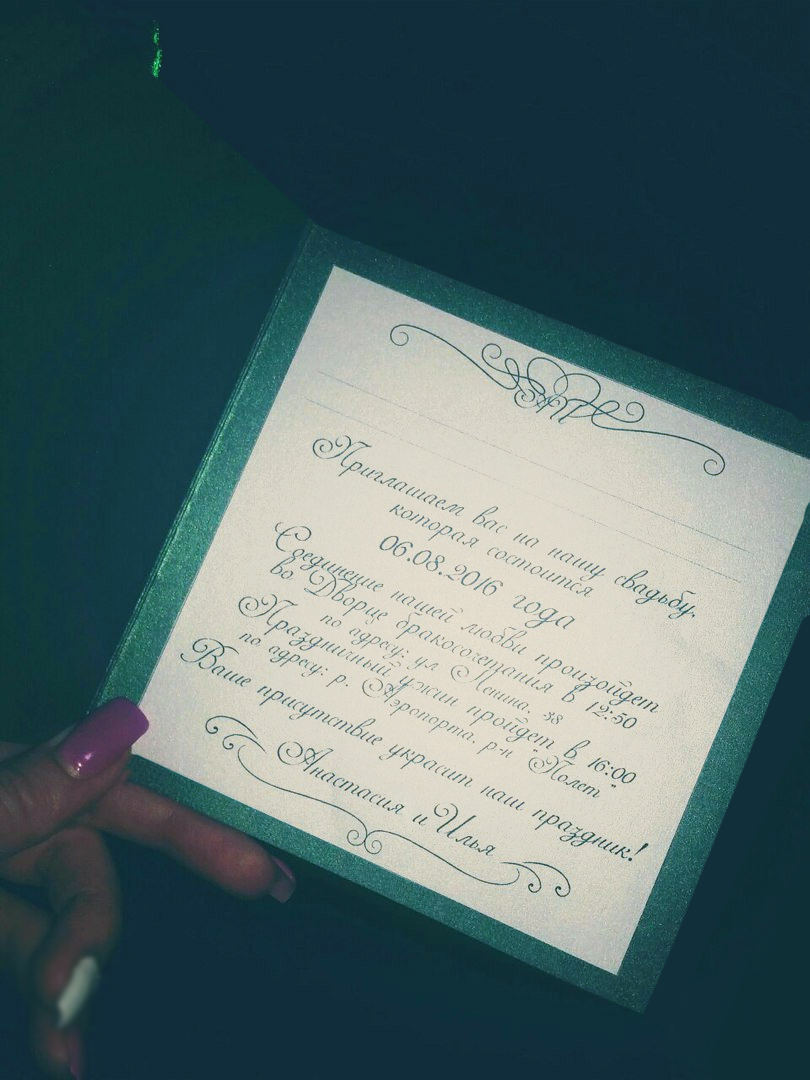 Приглашаем вас на нашу свадьбу,
которая состоится
06.08.2016 года
Соединение нашей любви произойдет
во Дворце бракосочетания в 12:50
по адресу: ул Ленина, 38
Праздничный ужин пройдет в 16:00
по адресу: р. Аэропорта, р-н "Полет"
Ваше присутствие украсит наш праздник!
Анастасия и Илья